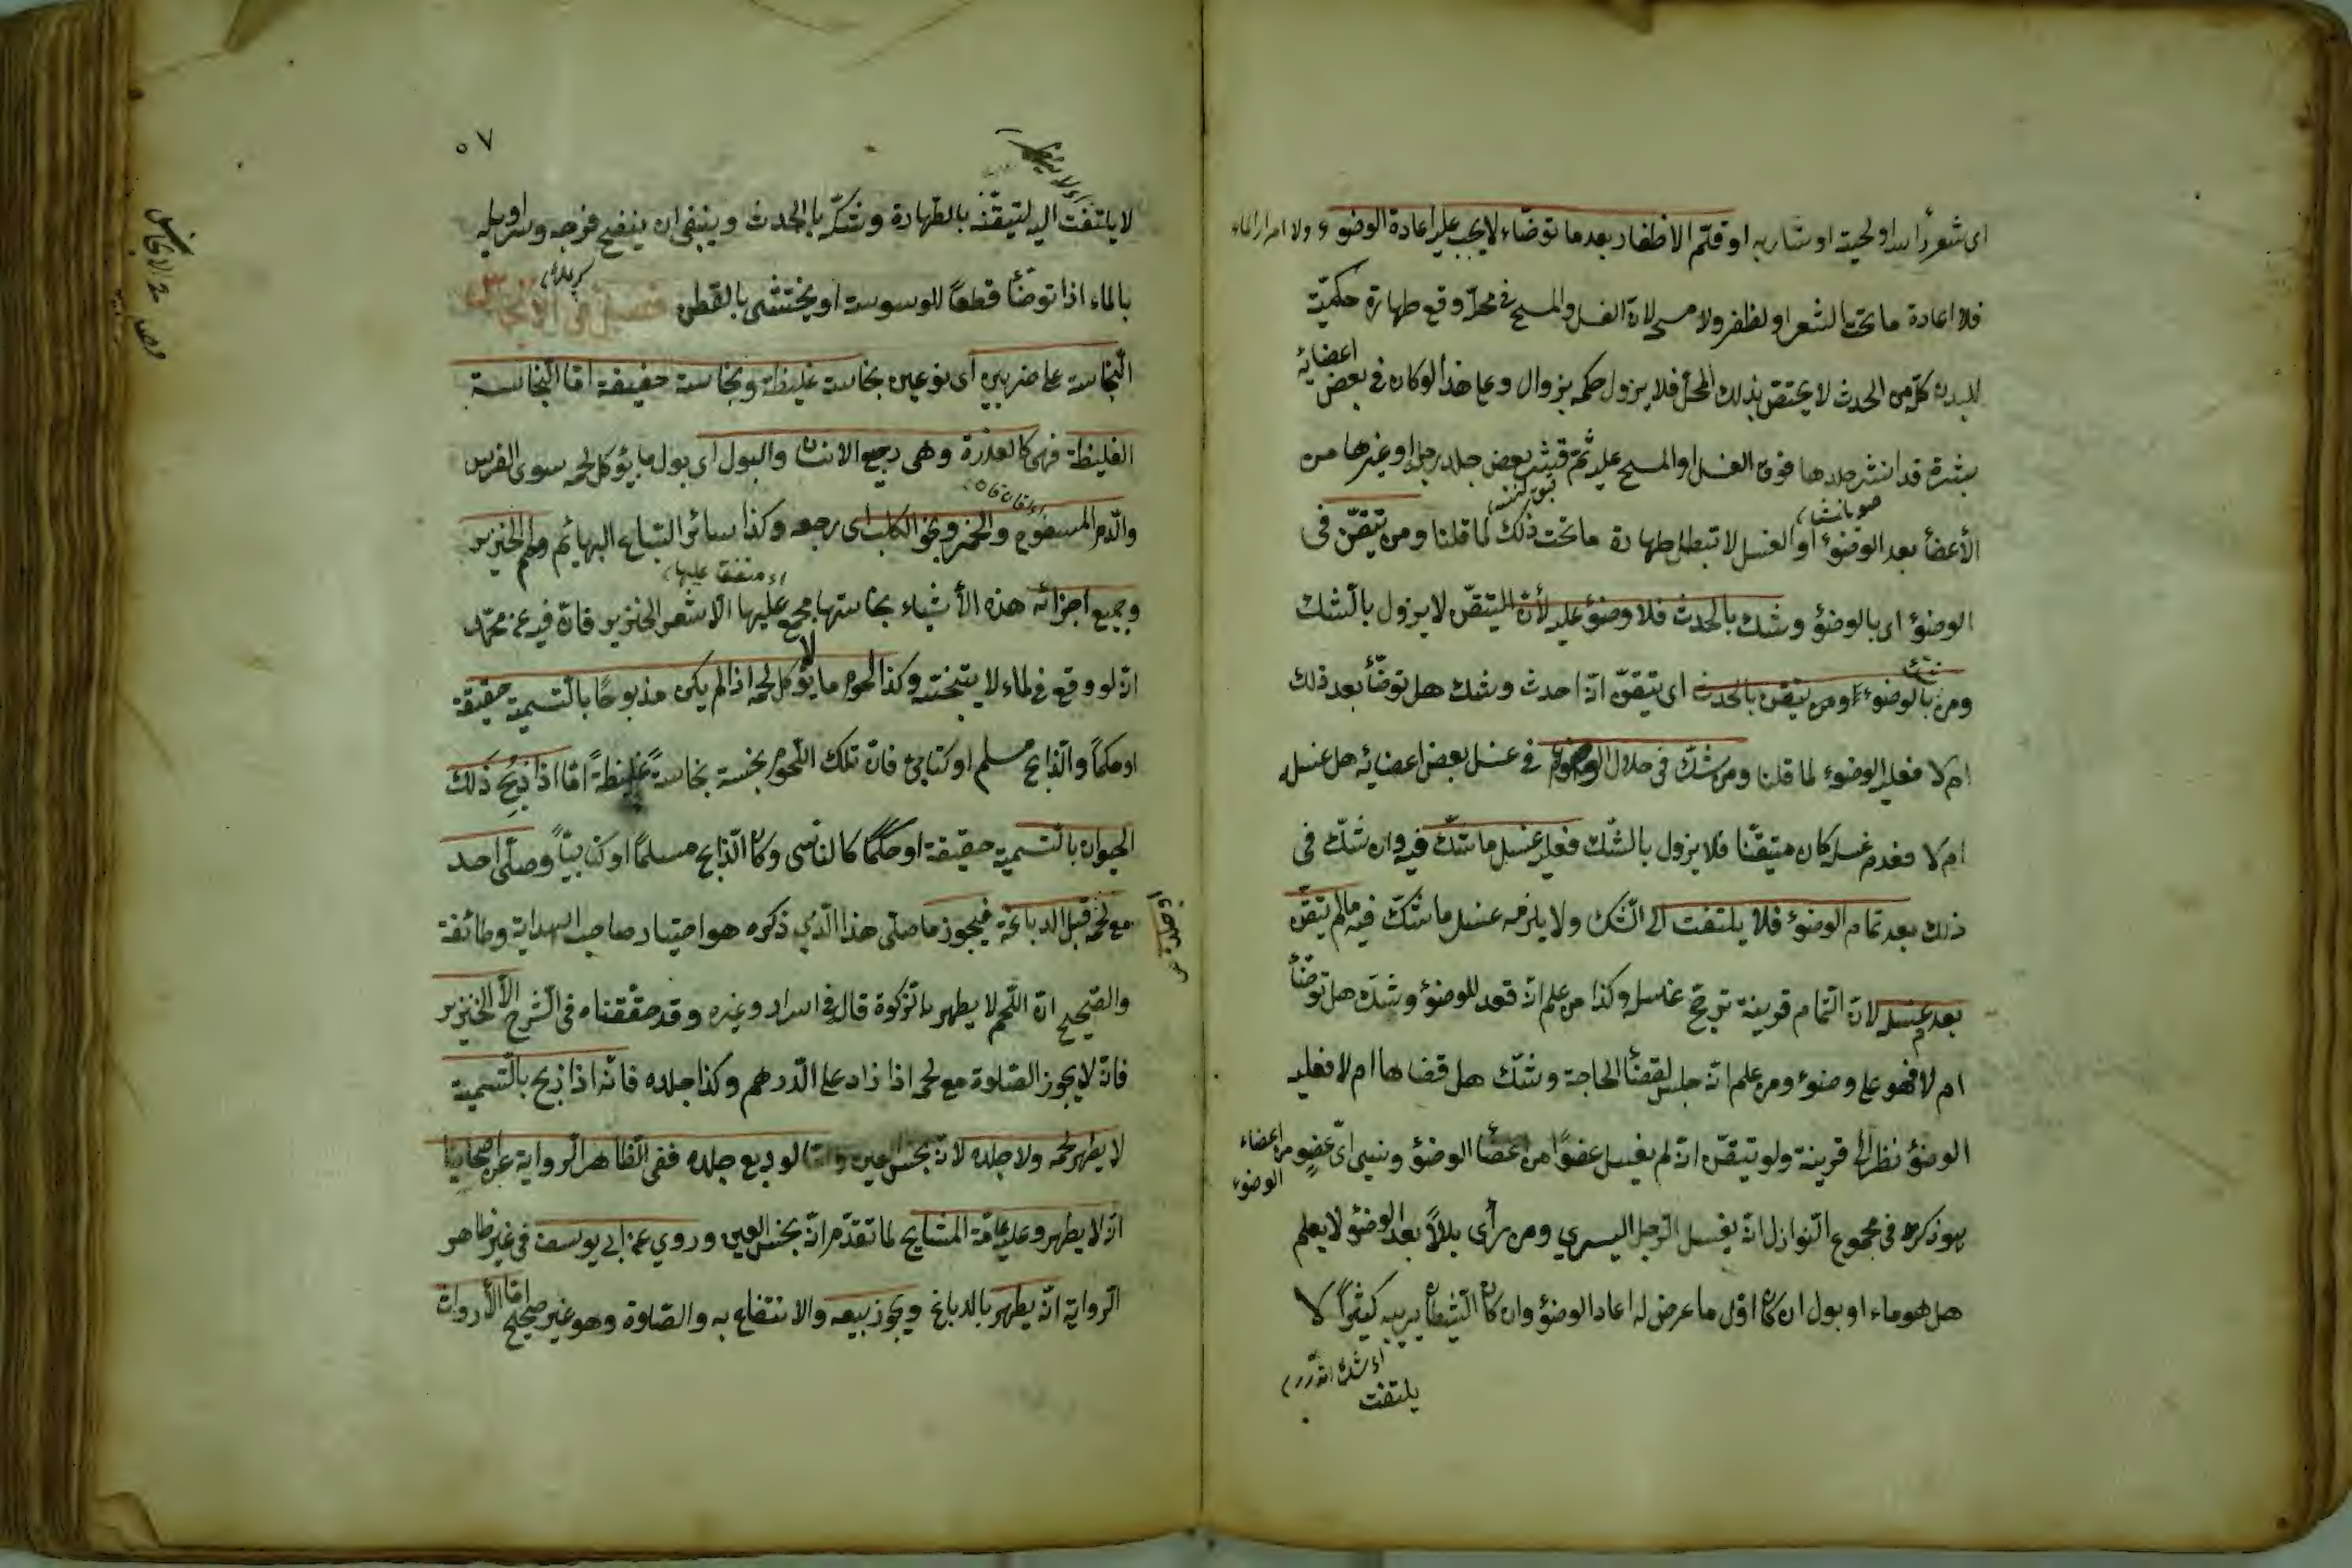 اى شعر رأسه او لحيته او شاربه او قلّم الاظفار بعدما توضّاء لا يجب عليه اعادة الوضوء ولا امرار الماء
فلا اعادة ما تحت الشعر او لظفر ولا مسح لانّ الغسل والمسح فى محلّه وقع طهارة حكميّة
للبدن كلّه من الحدث لا يختصّ بذلك المحلّ فلا يزول حكمه بزوال وعلى هذا لو كان فى بعض اعضائه
بثرة قد انتثر جلدها فوق الغسل او المسح عليه ثمّ قشر بعض جلد رجله او غيرها من
الأعضأ بعد الوضوء او الغسل لا تبطل طهارة ما تحت ذلك لما قلنا ومن تيقّن فى
الوضوٴ اى بالوضوٴ وشك بالحدث فلا وضوٴ عليه لأنّ اليتقّن لا يزول بالشك
ومن شك بالوضوء ومن تيقن بالحدث اى تيقّن انّه احدث وشك هل توضّأ بعد ذلك
ام لا فعليه الوضوء لما قلنا ومن شكّ فى خلال الوضوء فى غسل بعض اعضائه هل غسله
ام لا فعدم غسله كان متيقّنا فلا يزول بالشّك فعليه غسل ما شكّ فيه وان شكّ فى
ذلك بعد تمام الوضوٴ فلا يلتفت الى الشّك ولا يلزمه غسل ما شكّ فيه مالم يتقّن
بعدم غسله لانّ التمام قرينة ترجّح غسله وكذا من علم انّه قعد للوضوٴ وشكّ هل توضّأ
ام لا فهو على وضوء ومن علم انّه جلس لقضٔا الحاجة وشكّ هل قضاها ام لا فعليه
الوضوٴ نظرا الى قرينة ولو تيقّن انّه لم يغسل عضوًا من اعضٔا الوضوٴ ونسى اىّ عضوٍ من اعضاء الوضوء
هو ذكره فى مجموع النّوازل انّه يغسل الرّجل اليسرى ومن رأى بللاً بعد الوضوٴ لا يعلم
هل هو ماء او بول ان كان اوّل ما عرض له اعاد الوضوٴ وان كان الشيطان يريبه كثيراً لا
يلتفت
٥٧
لا يلتفت اليه لتيقّنه بالطّهارة وشكّه بالحدث وينبغى ان ينضح فرجه وسراويله
بالماء اذا توضّأ قطعاً للوسوسة او يحتشى بالقطن فصل فى الانجاس
النّجاسة على ضربين اى نوعين نجاسة غليظة ونجاسة خفيفة امّا النّجاسة
الغليظة فهى كالعذرة وهى رجيع الانسان والبول اى بول ما يؤكل لحمه سوى الفرس
والدّم المسفوح والخمر ونحو الكلب اى رجيعه وكذا سائر السّباع البهائم ولحم الخنزير
وجميع اجزائه هذه الأشياء نجاستها مجمع عليها الّا شعر الخنزير فانّ فيه عن محمّد
انّه لو وقع فى لماء لا ينجّسه وكذا لحوم ما لا يؤكل لحمه اذا لم يكن مذبوحًا بالتّسمية حقيقة
او حكماً والذّابح مسلم او كتابىّ فانّ تلك اللّحوم نجسة نجاسةً غليظةً امّا اذا ذبح ذلك
الحيوان بالتّسمية حقيقة او حكمًا كالنّاسى وكان الذّابح مسلمًا او كتابيًا وصلّى احد
مع لحمه قبل الدباغة فيجوز ما صلّى هذا الّذى ذكره هو اختيار صاحب الهداية وطائفة
والصّحيح انّ اللّحم لا يطهر بالزكوة قال فى اسرار وغيره وقد حقّقناه فى الشّرح الّا الخنزير
فانّه لا يجوز الصّلوة مع لحمه اذا زاد على الدّرهم وكذا جلده فانّه اذا ذبح بالتّسمية
لا يطهر لحمه ولا جلده لانّه نجس العين وامّا لو دبغ جلده ففى الظّاهر الرّواية عن اصحابنا
انّه لا يطهر وعليه عامّة المشايخ لما تقدّم انّه نجس العين وروى عن ابى يوسف فى غير ظاهر
الرّواية انّه يطهر بالدباغ ويجوز بيعه والانتفاع به والصّلوة وهو غير صحيح امّا الأرواث